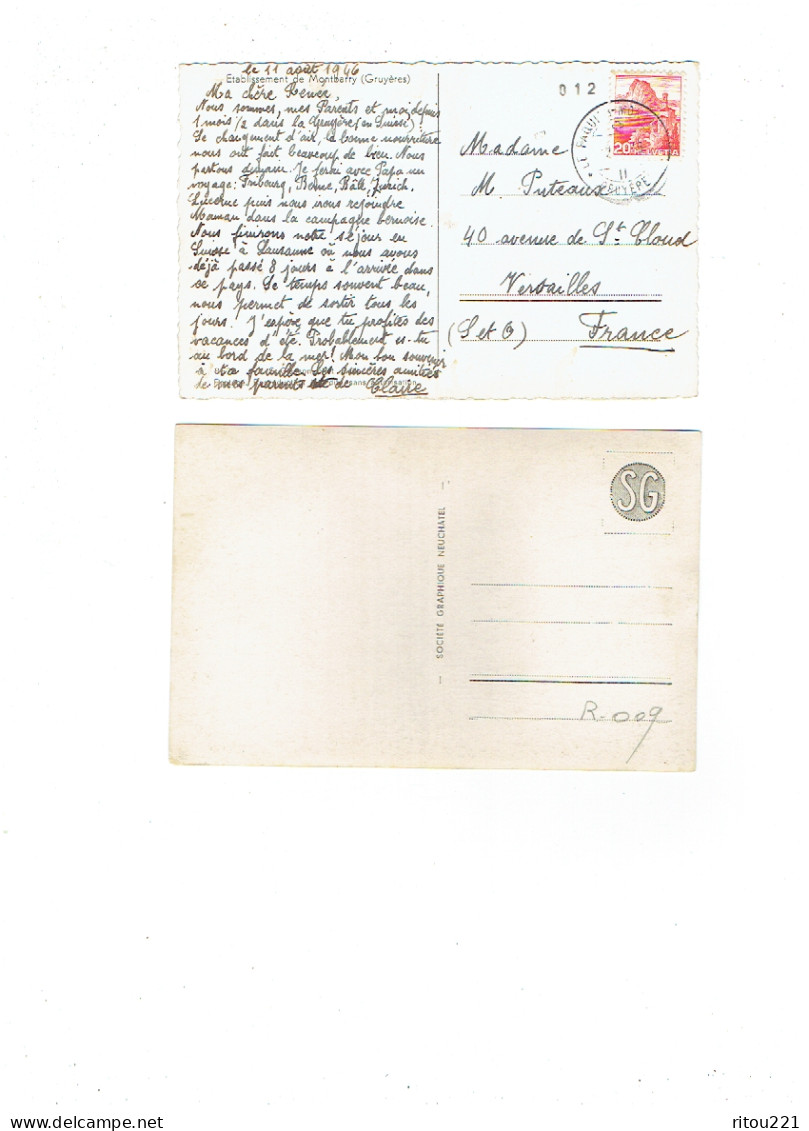 le 11 août 1946
Etablissement de Montbarry (Gruyères)
Ma chère
Nous sommes, mes Parents et moi, depuis
1 mois 1/2 dans la Gruyère (en Suisse).
Le changement d'air, la bonne nourriture
nous ont fait beaucoup de bien. Nous
partons demain. Je ferai avec Papa un
voyage: Fribourg, Berne, Bâle, Zurich,
Lucerne puis nous irons rejoindre
Maman dans la campagne bernoise.
Nous finirons notre séjour en
Suisse à Lausanne où nous avons
déjà passé 8 jours à l'arrivée dans
ce pays. Le temps souvent beau,
nous permet de sortir tous les
jours. J'espère que tu profites des
vacances d'été. Probablement es-tu
au bord de la mer! Mon bon souvenir
à ta famille. Les sincères amitiés
de mes parents et de Claire
012
20 HELVETIA
LE PÂQUIER
GRUYÈRE
Madame
M. Puteaux
40 avenue de St Cloud
Versailles
(S et O) France
SG
— SOCIÉTÉ GRAPHIQUE NEUCHÂTEL —
R-009
delcampe.net
ritou221